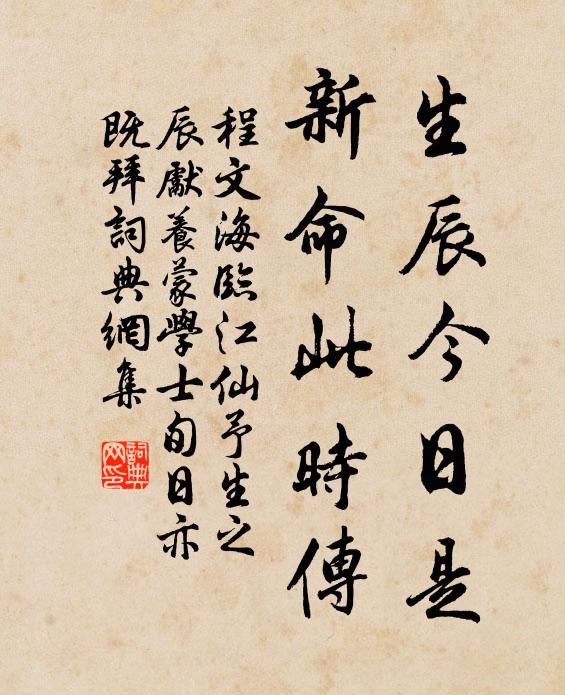 生辰今日是
新命此時傳
程文海臨江仙予生之
辰獻養蒙學士旬日亦
既拜詞典網集
詞典网印